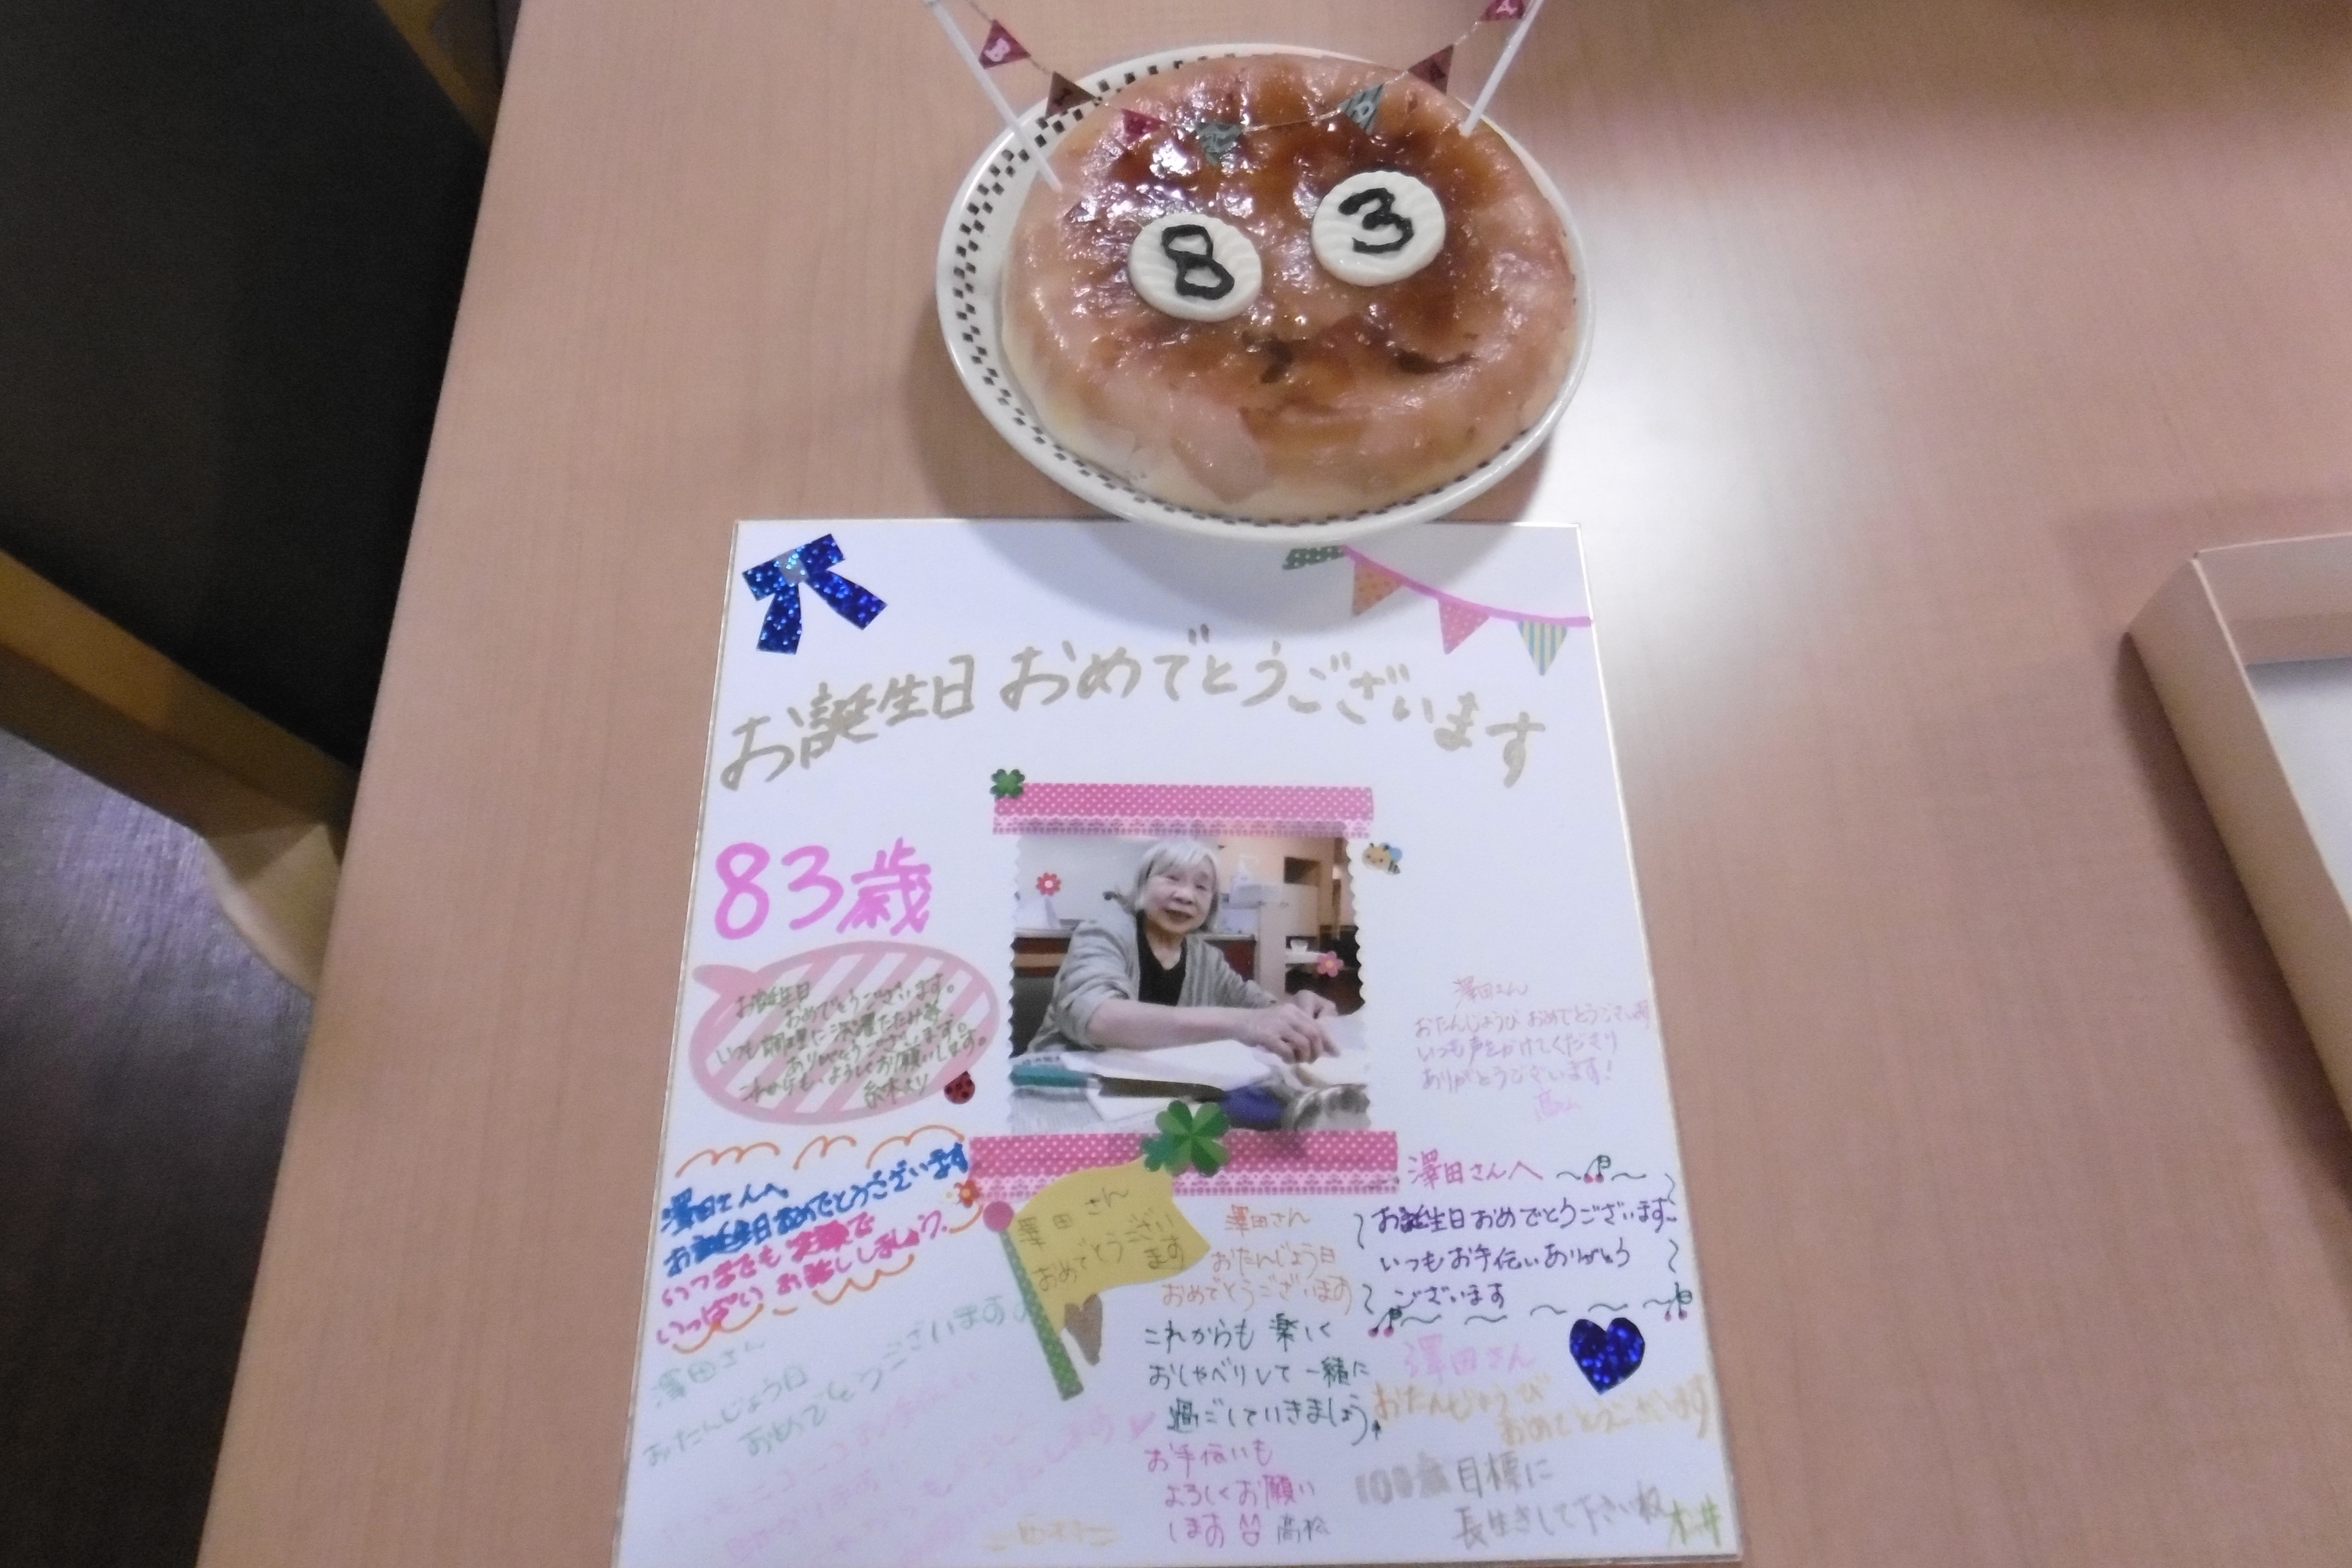 8 3
お誕生日 おめでとうございます
83歳
お誕生日
おめでとうございます。
いつも料理に洗濯たたみ等
ありがとうございます。
これからも、よろしくお願いします。
澤田さんへ
お誕生日おめでとうございます
いつまでも笑顔で
いっぱいお話ししましょう。
澤田さん
おたんじょう日
おめでとうございます
澤田さん
おめでとうござい
ます
澤田さん
おたんじょう日
おめでとうございます
これからも楽しく
おしゃべりして一緒に
過ごしていきましょう
お手伝いも
よろしくお願い
します 高松
澤田さん
おたんじょうび おめでとうございます
いつも声をかけてくださり
ありがとうございます!
澤田さんへ
お誕生日おめでとうございます
いつもお手伝いありがとう
ございます
澤田さん
おたんじょうび
おめでとうございます
100歳目標に
長生きして下さいね